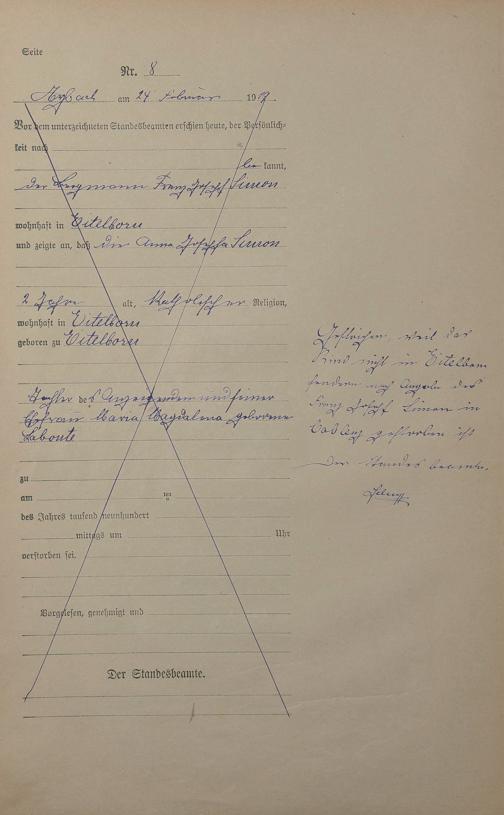 Seite
Nr. 8
Arzbach am 24 Februar 19
Vor dem unterzeichneten Standesbeamten erschien heute, der Persönlich-
keit nach
be kannt,
der Bergmann Franz Joseph Simon
wohnhaft in Eitelborn
und zeigte an, daß die Anna Josepha Simon
2 Jahre alt, katholischer Religion,
wohnhaft in Eitelborn
geboren zu Eitelborn
Tochter des Anzeigenden und seiner
Ehefrau Maria Magdalena geborene
Labonte
zu
am ten
des Jahres tausend neunhundert
mittags um Uhr
verstorben sei.
Vorgelesen, genehmigt und
Der Standesbeamte.
Gestrichen, weil das
Kind nicht in Eitelborn
sondern nach Angabe des
Franz Josef Simon in
Coblenz gestorben ist
Der Standesbeamte.